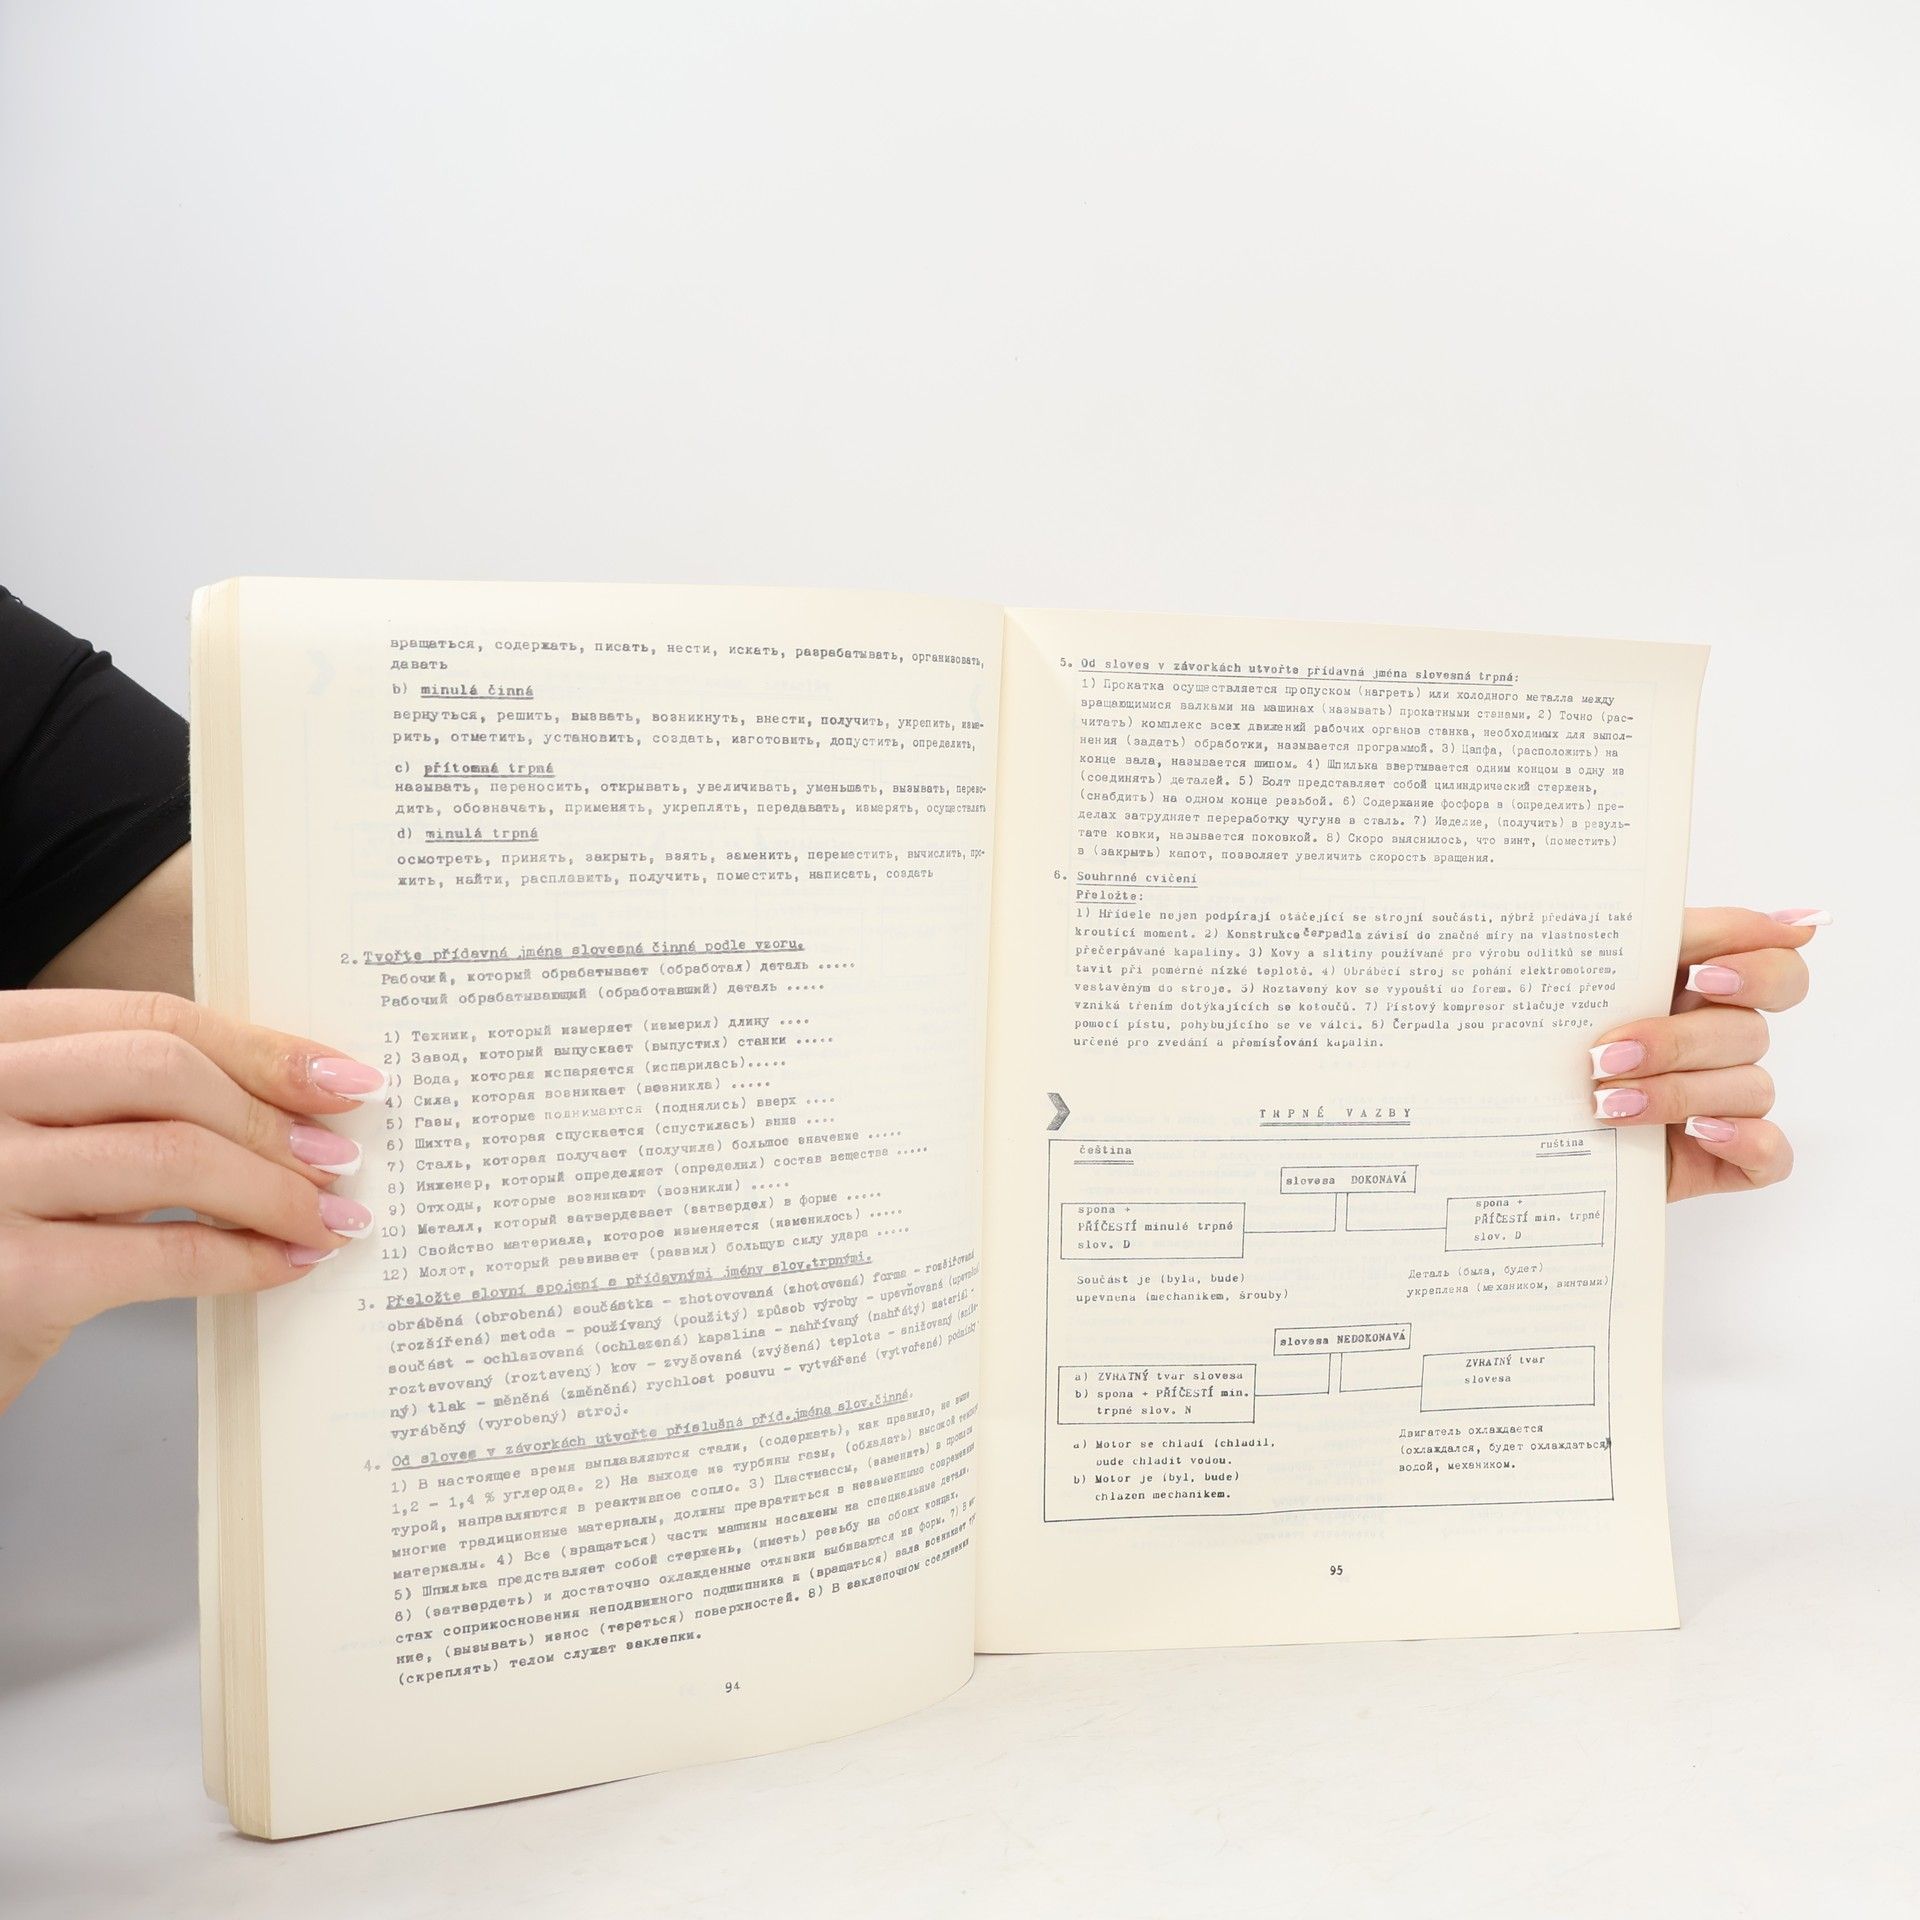 вращаться, содержать, писать, нести, искать, разрабатывать, организовать,
давать
b) minulá činná
вернуться, решить, вызвать, возникнуть, внести, получить, укрепить, изме-
рить, отметить, установить, создать, изготовить, допустить, определить,
c) přítomná trpná
называть, переносить, открывать, увеличивать, уменьшать, вызывать, перево-
дить, обозначать, применять, укреплять, передавать, измерять, осуществлять
d) minulá trpná
осмотреть, принять, закрыть, взять, заменить, переместить, вычислить, про-
жить, найти, расплавить, получить, поместить, написать, создать
2. Tvořte přídavná jména slovesná činná podle vzoru.
Рабочий, который обрабатывает (обработал) деталь .....
Рабочий обрабатывающий (обработавший) деталь .....
1) Техник, который измеряет (измерил) длину ....
2) Завод, который выпускает (выпустил) станки .....
) Вода, которая испаряется (испарилась).....
4) Сила, которая возникает (возникла) .....
5) Газы, которые поднимаются (поднялись) вверх ....
6) Шихта, которая спускается (спустилась) вниз ....
7) Сталь, которая получает (получила) большое значение .....
8) Инженер, который определяет (определил) состав вещества .....
9) Отходы, которые возникают (возникли) .....
10) Металл, который затвердевает (затвердел) в форме .....
11) Свойство материала, которое изменяется (изменилось) .....
12) Молот, который развивает (развил) большую силу удара .....
3. Přeložte slovní spojení s přídavnými jmény slov.trpnými.
obráběná (obrobená) součástka - zhotovovaná (zhotovená) forma - rozšiřovaná
(rozšířená) metoda - používaný (použitý) způsob výroby - upevňovaná (upevněná)
součást - ochlazovaná (ochlazená) kapalina - nahřívaný (nahřátý) materiál -
roztavovaný (roztavený) kov - zvyšovaná (zvýšená) teplota - snižovaný (sníže-
ný) tlak - měněná (změněná) rychlost posuvu - vytvářené (vytvořené) podmínky-
vyráběný (vyrobený) stroj.
4. Od sloves v závorkách utvořte příslušná příd.jména slov.činná.
1) В настоящее время выплавляются стали, (содержать), как правило, не выше
1,2 - 1,4 % углерода. 2) На выходе из турбины газы, (обладать) высокой темпера
турой, направляются в реактивное сопло. 3) Пластмассы, (заменить) в прошлом
многие традиционные материалы, должны превратиться в незаменимые современные
материалы. 4) Все (вращаться) части машины насажены на специальные детали.
5) Шпилька представляет собой стержень, (иметь) резьбу на обоих концах.
6) (затвердеть) и достаточно охлажденные отливки выбиваются из форм. 7) В ме
стах соприкосновения неподвижного подшипника и (вращаться) вала возникает
ние, (вызывать) износ (тереться) поверхностей. 8) В заклепочном соединении
(скреплять) телом служат заклепки.
94
5. Od sloves v závorkách utvořte přídavná jména slovesná trpná:
1) Прокатка осуществляется пропуском (нагреть) или холодного металла между
вращающимися валками на машинах (называть) прокатными станами. 2) Точно (рас-
читать) комплекс всех движений рабочих органов станка, необходимых для выпол-
нения (задать) обработки, называется программой. 3) Цапфа, (расположить) на
конце вала, называется шипом. 4) Шпилька ввертывается одним концом в одну из
(соединять) деталей. 5) Болт представляет собой цилиндрический стержень,
(снабдить) на одном конце резьбой. 6) Содержание фосфора в (определить) пре-
делах затрудняет переработку чугуна в сталь. 7) Изделие, (получить) в резуль-
тате ковки, называется поковкой. 8) Скоро выяснилось, что винт, (поместить)
в (закрыть) капот, позволяет увеличить скорость вращения.
6. Souhrnné cvičení
Přeložte:
1) Hřídele nejen podpírají otáčející se strojní součásti, nýbrž předávají také
kroutící moment. 2) Konstrukce čerpadla závisí do značné míry na vlastnostech
přečerpávané kapaliny. 3) Kovy a slitiny používané pro výrobu odlitků se musí
tavit při poměrně nízké teplotě. 4) Obráběcí stroj se pohání elektromotorem,
vestavěným do stroje. 5) Roztavený kov se vypouští do forem. 6) Třecí převod
vzniká třením dotýkajících se kotoučů. 7) Pístový kompresor stlačuje vzduch
pomocí pístu, pohybujícího se ve válci. 8) Čerpadla jsou pracovní stroje,
určené pro zvedání a přemísťování kapalin.
TRPNÉ VAZBY
čeština ruština
slovesa DOKONAVÁ
spona + spona +
PŘÍČESTÍ minulé trpné PŘÍČESTÍ min. trpné
slov. D slov. D
Součást je (byla, bude) Деталь (была, будет)
upevněna (mechanikem, šrouby) укреплена (механиком, винтами)
slovesa NEDOKONAVÁ
a) ZVRATNÝ tvar slovesa ZVRATNÝ tvar
b) spona + PŘÍČESTÍ min. slovesa
trpné slov. N
a) Motor se chladí (chladil, Двигатель охлаждается
bude chladit vodou. (охлаждался, будет охлаждаться)
b) Motor je (byl, bude) водой, механиком.
chlazen mechanikem.
95